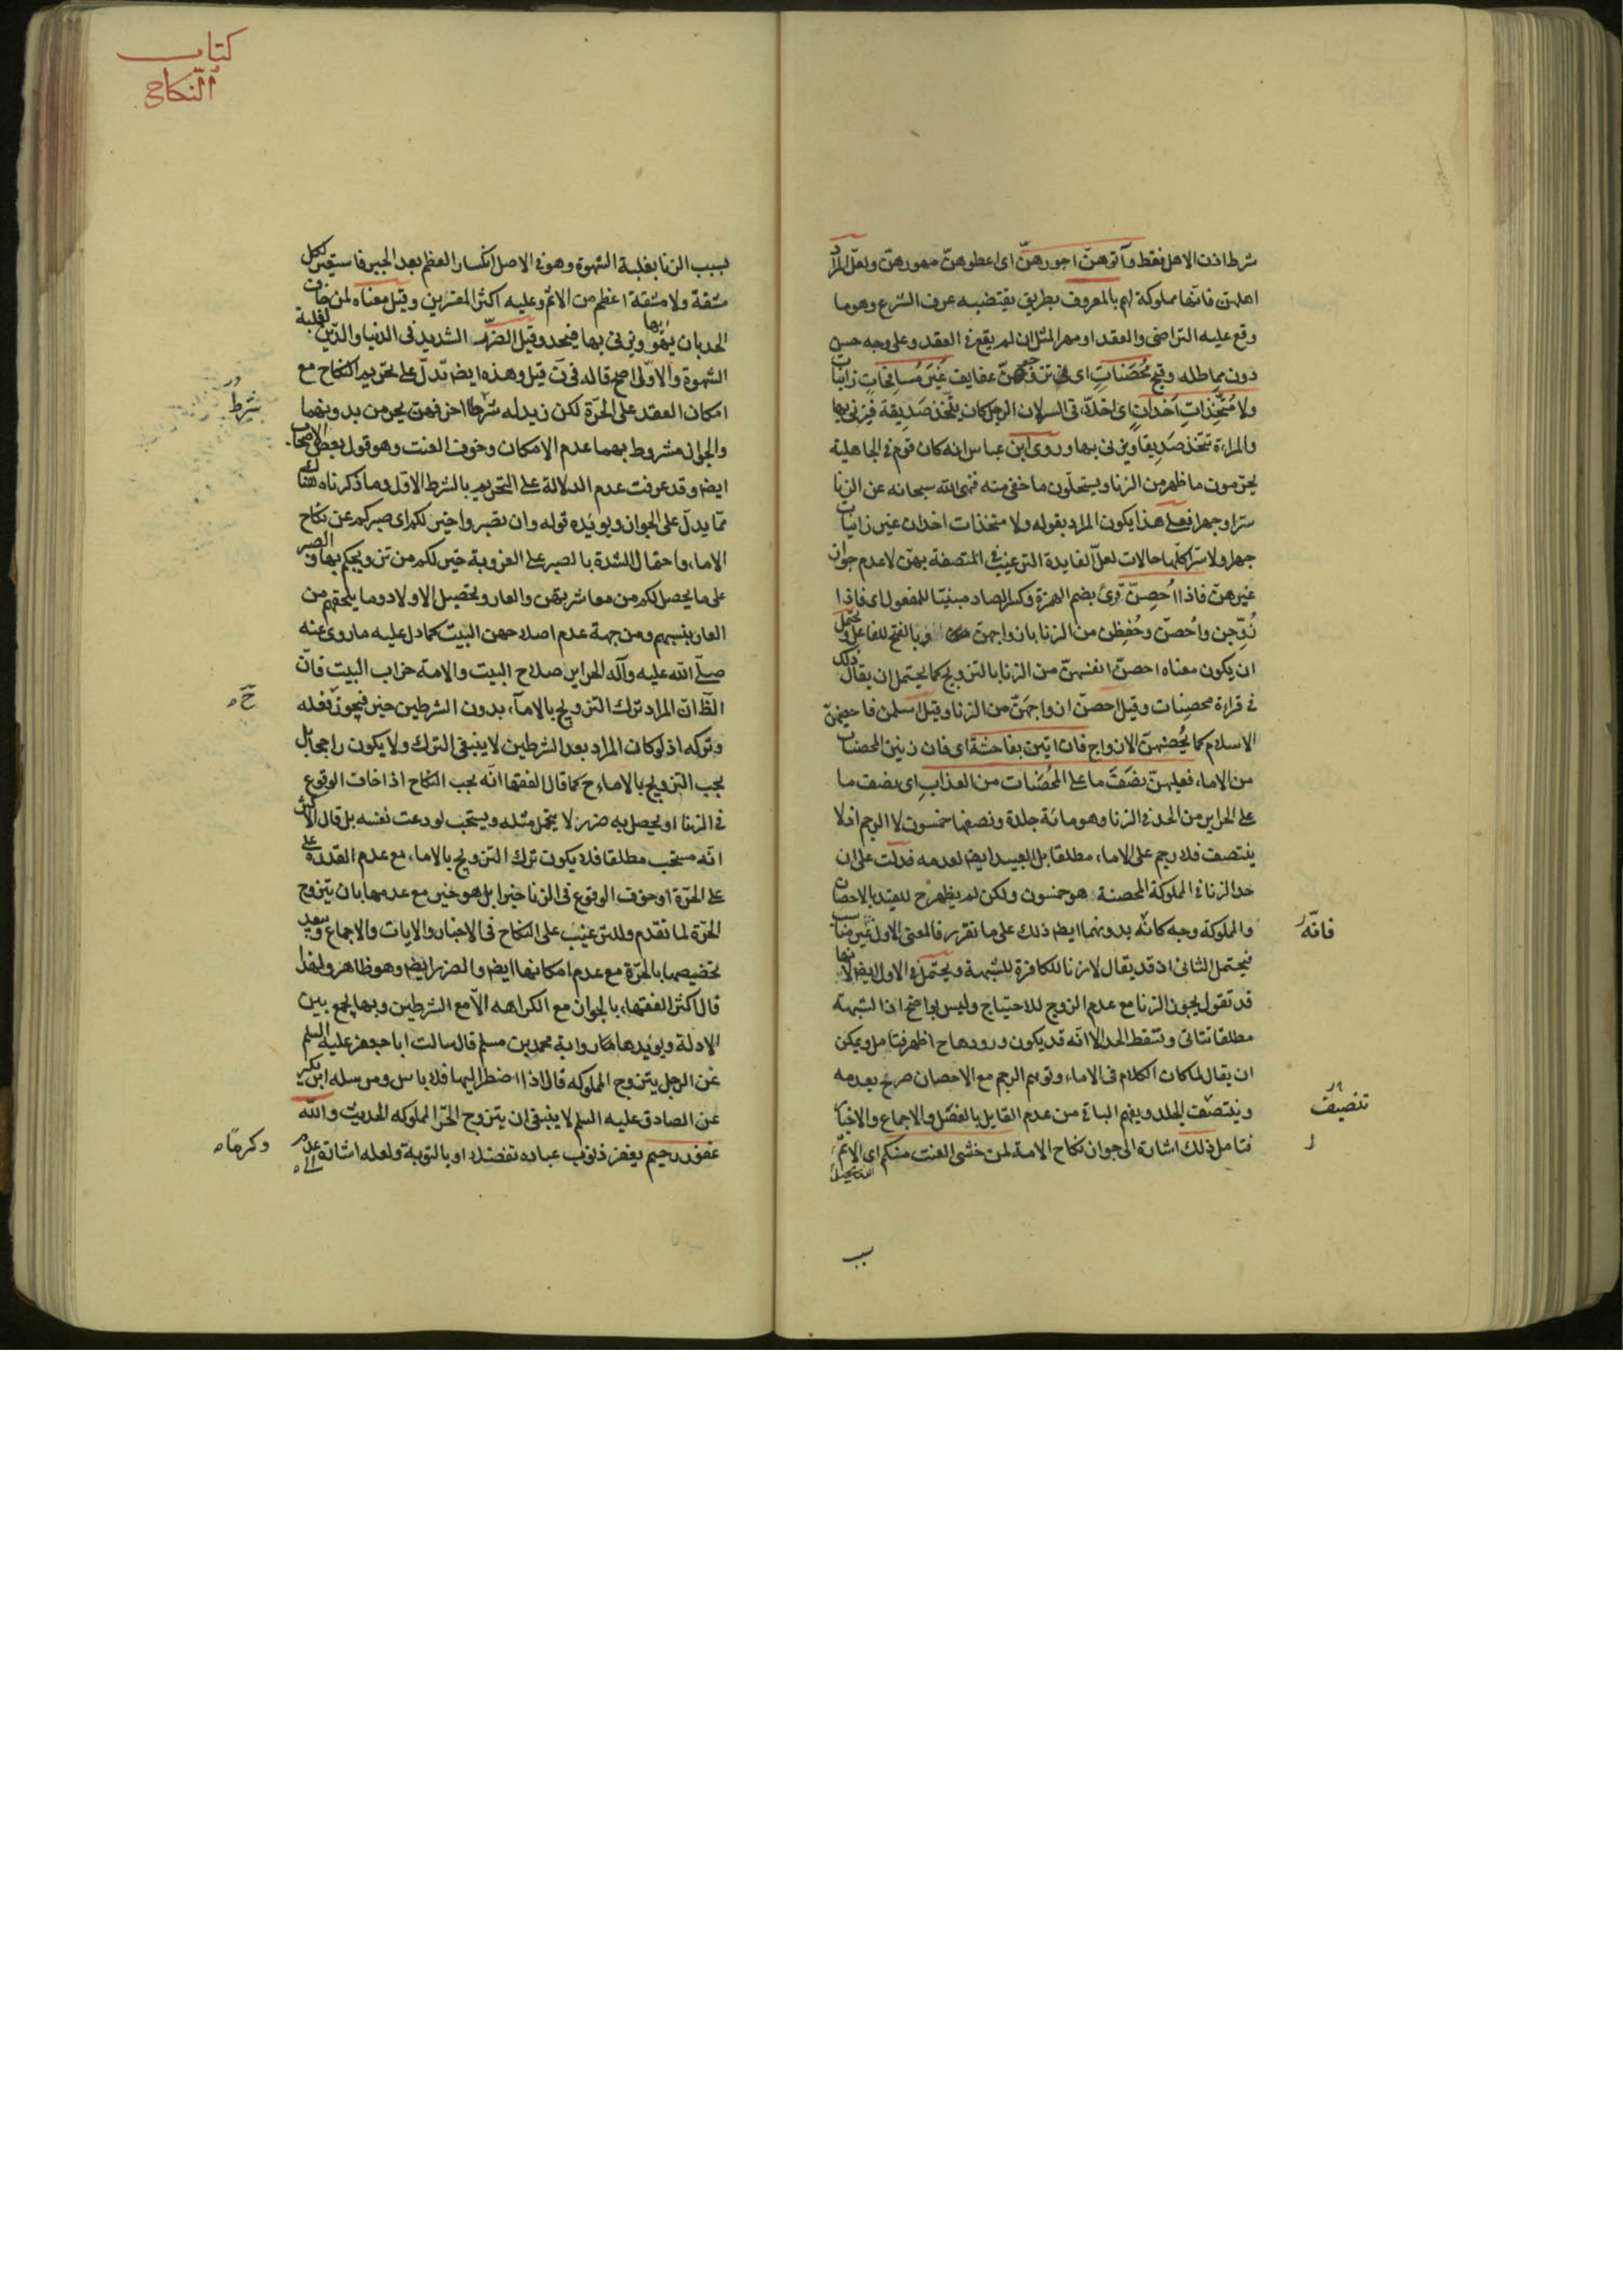 شرط اذن الاهل فقط وآتوهنّ اجورهنّ اى اعطوهنّ مهورهنّ ولعلّ المراد
اهلهنّ فانّها مملوكة لهم بالمعروف بطريق يقتضيه عرف الشرع وهو ما
وقع عليه التراضى والعقد او مهر المثل ان لم يقع فى العقد وعلى وجه حسن
دون مماطلة وقبح مُحصَنَاتٍ اى تزوّجوهنّ عفايف غَيْرَ مُسَافِحَاتٍ زانيات
ولا مُتَّخِذَاتِ اَخْدَانٍ اى اخلاّء فى السر لان الرجل كان يتّخذ صَدِيقَة فيزنى بها
والمراءة تتخذ صَدِيقا ويزنى بها وروى ابن عباس انه كان قوم فى الجاهلية
يحرّمون ما ظهر من الزنا ويستحلّون ما خفى منه فنهى الله سبحانه عن الزنا
سرّا وجهرا فعلى هذا يكون المراد بقوله ولا متخذات اخدان غير زانيات
جهرا ولا سرّا كلّها حالات لعلّ الفايدة الترغيب فى المتصفة بهنّ لا عدم جواز
غيرهنّ فاذا اُحصِنّ قرئ بضم الهمزة وكسر الصاد مبنيّا للمفعول اى فاذا
زُوِّجن واُحصنّ وحُفِظن من الزنا بازواجهنّ وبالفتح للفاعل ويحتمل
ان يكون معناه احصنّ انفسهنّ من الزنا بالتزويج كما يحتمل ان يقال ذلك
فى قراءة محصِنات وقيل احصنّ ازواجهَنّ من الزنا وقيل اسلمن فاحصنهنّ
الاسلام كما يُحصنهنّ الازواج فان اتين بفاحشة اى فان زنين المحصنات
من الاماء فعليهنّ نصَفَ ما على المُحصَنات من العذابِ اى نصف ما
على الحراير من الحد فى الزنا وهو مائة جلدة ونصفها خمسون لا الرجم اذ لا
ينتصف فلا رجم على الاماء مطلقا بل العبيد ايضا لعدمه فدلّت على ان
حد الزنا فى المملوكة المحصنة هو خمسون ولكن لم يظهر ح للقيد بالاحصان
والمملوكة وجه كانّه بدونهما ايضا ذلك على ما تقرر فالمعنى الاول غير مناسب
فيحتمل الثانى اذ قد يقال لا زنا للكافرة للشبهة ويحتمل فى الاول ايضا لانها
قد تقول يجوز الزنا مع عدم الزوج للاحتياج وليس بواضح اذ الشبهة
مطلقا تتاتى وتسقط الحد الا انه قد يكون ورودها ح اظهر فتامل ويمكن
ان يقال لما كان الكلام فى الاماء وتوهم الرجم مع الاحصان صرح بعدمه
وينتصف الجلد ويفهم الباقى من عدم القايل بالفصل والاجماع والاخبار
فتامل ذلك اشارة الى جواز نكاح الامة لمن خشى العنت منكم اى الاثم
الذى يحصل
سبب
فانّه
تنصيف
كتاب
النّكاح
بسبب الزنا بغلبة الشهوة وهو فى الاصل انكسار العظم بعد الجبر فاستعير لكل
مشقة ولا مشقة اعظم من الاثم وعليه اكثر المفسرين وقيل معناه لمن خاف
الحد بان يهواها ويزنى بها فيحد وقيل الضرر الشديد فى الدنيا والدين لغلبة
الشهوة والاوّل اصح قاله فى ن قيل وهذه ايضا تدلّ على تحريم النكاح مع
امكان العقد على الحرّة لكن زيد له شرطا اخر فهنّ يحرمن بدونهما
والجواز مشروط بهما عدم الامكان وخوف العنت وهو قول بعض الاصحاب
ايضا وقد عرفت عدم الدلالة على التحريم بالشرط الاول وما ذكرناه هناك
ممّا يدلّ على الجواز ويويّده قوله وان تصبروا خير لكم اى صبركم عن نكاح
الاماء واحتمال الشدة بالصبر على العزوبة خير لكم من تزويجكم بها والصبر
على ما يحصل لكم من معاشرتهن والعار وتحصيل الاولاد وما يلحقهم من
العار بنسبهم ومن جهة عدم اصلاحهن البيت كما دل عليه ما روى عنه
صلّى الله عليه وآله الحراير صلاح البيت والامة خراب البيت فانّ
الظّ ان المراد ترك التزويج بالاماء بدون الشرطين خير فيجوز فعله
وتركه اذ لو كان المراد بعد الشرطين لا ينبغى الترك ولا يكون راجحا بل
يجب التزويج بالاماء ح كما قال الفقها انّه يجب النكاح اذا خاف الوقوع
فى الزنا او يحصل به ضرر لا يتحمل مثله ويستحب لو دعت نفسه بل قال الاكثر
انّه مستحب مطلقا فلا يكون ترك التزويج بالاماء مع عدم القدرة على
على الحرّة او خوف الوقوع فى الزنا خيرا بل هو خير مع عدمها بان يتزوج
الحرّة لما تقدم وللترغيب على النكاح فى الاخبار والايات والاجماع وبعد
تخصيصها بالحرّة مع عدم امكانها ايضا والضرر ايضا وهو ظاهر ولهذا
قال اكثر الفقهاء بالجواز مع الكراهه الا مع الشرطين وبها يجمع بين
الادلة ويويدها رواية محمد بن مسلم قال سالت ابا جعفر عليه السلم
عن الرجل يتزوج المملوكه قال اذا اضطر اليها فلا باس ومرسله ابن بكير
عن الصادق عليه السلم لا ينبغى ان يتزوج الحرّ المملوكه الحديث والله
غفور رحيم يغفر ذنوب عباده تفضلا او بالتوبة ولعله اشارة الى عدم
شرط
حّ
وكرهاه